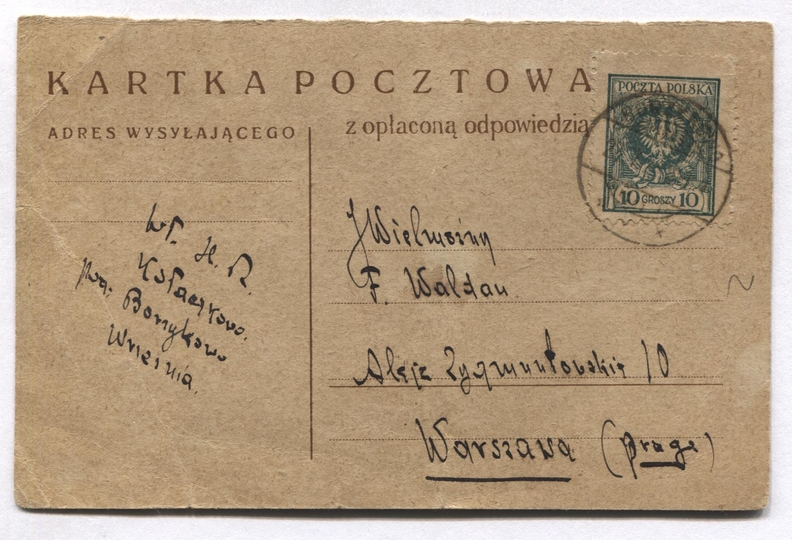 KARTKA POCZTOWA
ADRES WYSYŁAJĄCEGO
z opłaconą odpowiedzią
POCZTA POLSKA
10 GROSZY 10
Wł. H. R.
Kołaczkowo.
pocz. Borzykowo
Września
JWielmożny
F. Waldau
Aleje Zygmuntowskie 10
Warszawa (Praga)